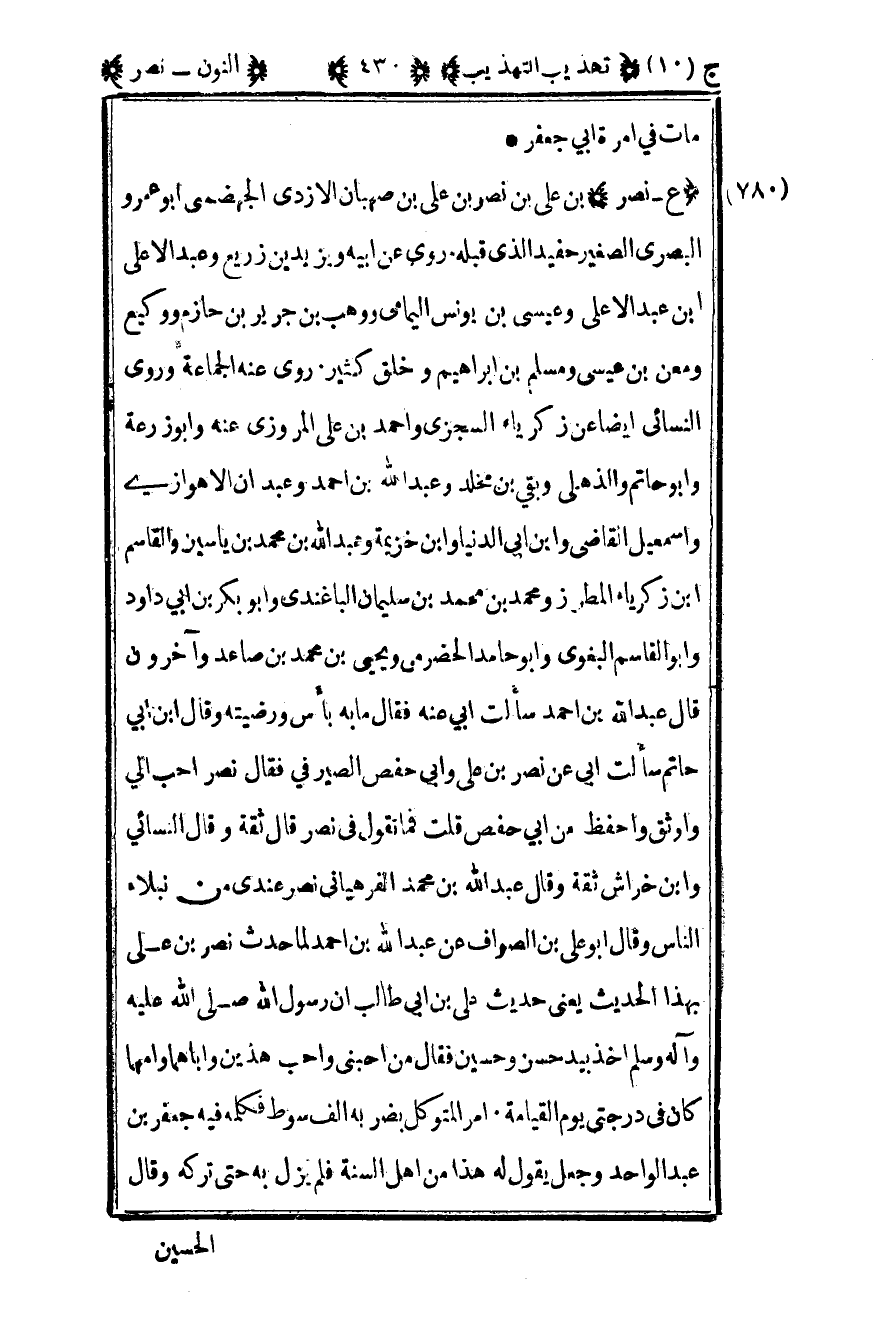 ج (١٠) ﴿ تهذيب التهذيب ﴾ ﴿ ٤٣٠ ﴾ ﴿ النون ـ نصر ﴾
مات في امرة ابي جعفر •
(٧٨٠) ﴿ ع ـ نصر ﴾ بن على بن نصر بن على بن صهبان الازدى الجهضمى ابو عمرو
البصرى الصغير حفيد الذى قبله. روى عن ابيه ويزيد بن زريع وعبد الاعلى
ابن عبد الاعلى وعيسى بن يونس اليمامى ووهب بن جرير بن حازم ووكيع
ومعن بن عيسى ومسلم بن ابراهيم وخلق كثير. روى عنه الجماعة وروى
النسائى ايضا عن زكرياء السجزى واحمد بن على المروزى عنه وابو زرعة
وابو حاتم والذهلى وبقي بن مخلد وعبد الله بن احمد وعبدان الاهوازي
واسمعيل القاضى وابن ابى الدنيا وابن خزيمة وعبد الله بن محمد بن ياسين والقاسم
ابن زكرياء المطرز ومحمد بن محمد بن سليمان الباغندى وابو بكر بن ابي داود
وابو القاسم البغوى وابو حامد الحضرمى ويحيى بن محمد بن صاعد وآخرون
قال عبد الله بن احمد سألت ابي عنه فقال ما به بأس ورضيته وقال ابن ابي
حاتم سألت ابي عن نصر بن على وابي حفص الصيرفي فقال نصر احب الي
واوثق واحفظ من ابي حفص قلت فما تقول فى نصر قال ثقة وقال النسائي
وابن خراش ثقة وقال عبد الله بن محمد الفرهيانى نصر عندى من نبلاء
الناس وقال ابو على بن الصواف عن عبد الله بن احمد لما حدث نصر بن على
بهذا الحديث يعنى حديث على بن ابى طالب ان رسول الله صلى الله عليه
وآله وسلم اخذ بيد حسن وحسين فقال من احبنى واحب هذين واباهما وامهما
كان فى درجتى يوم القيامة. امر المتوكل بضربه الف سوط فكلمه فيه جعفر بن
عبد الواحد وجعل يقول له هذا من اهل السنة فلم يزل به حتى تركه وقال
الحسين